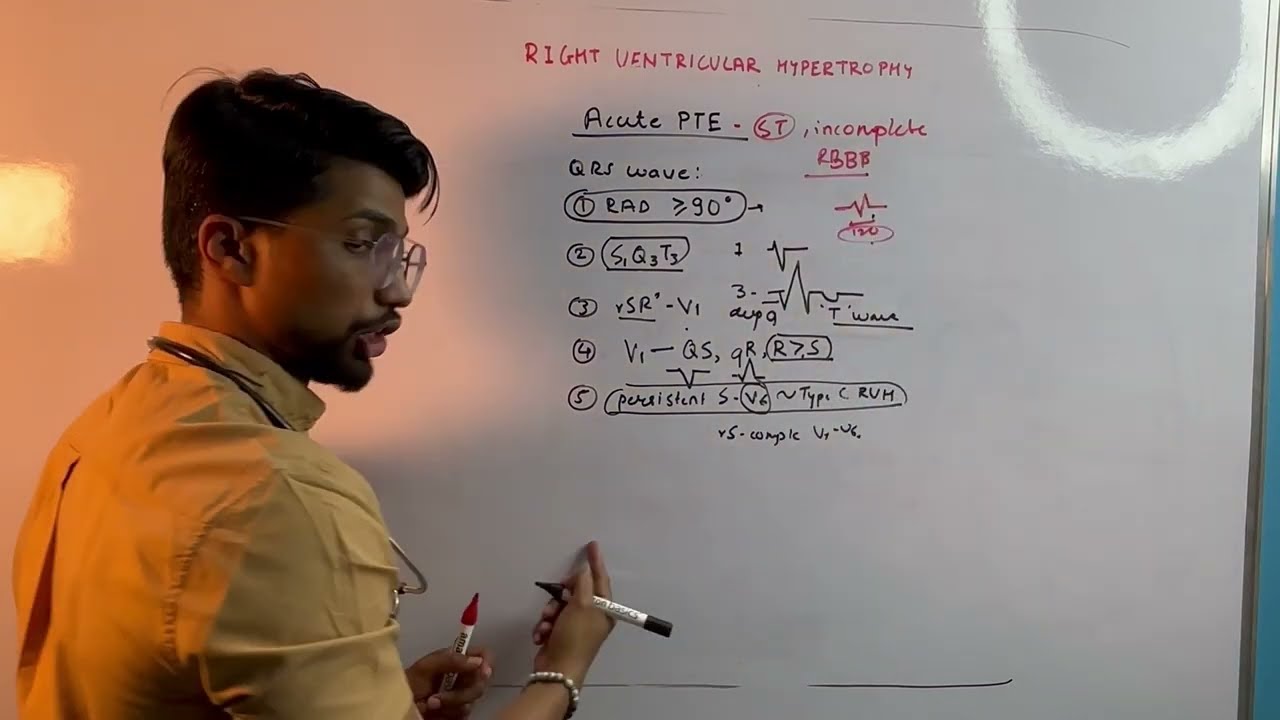 RIGHT VENTRICULAR HYPERTROPHY
Acute PTE - ST, incomplete
RBBB
QRS wave:
① RAD ≥90° →
120
② S₁Q₃T₃ 1
③ rSR' - V₁ 3-
deep q 'T' wave
④ V₁ — QS, qR, R≥S
⑤ persistent S-V6 ~ Type C RVH
rS-comple V₁-V6.